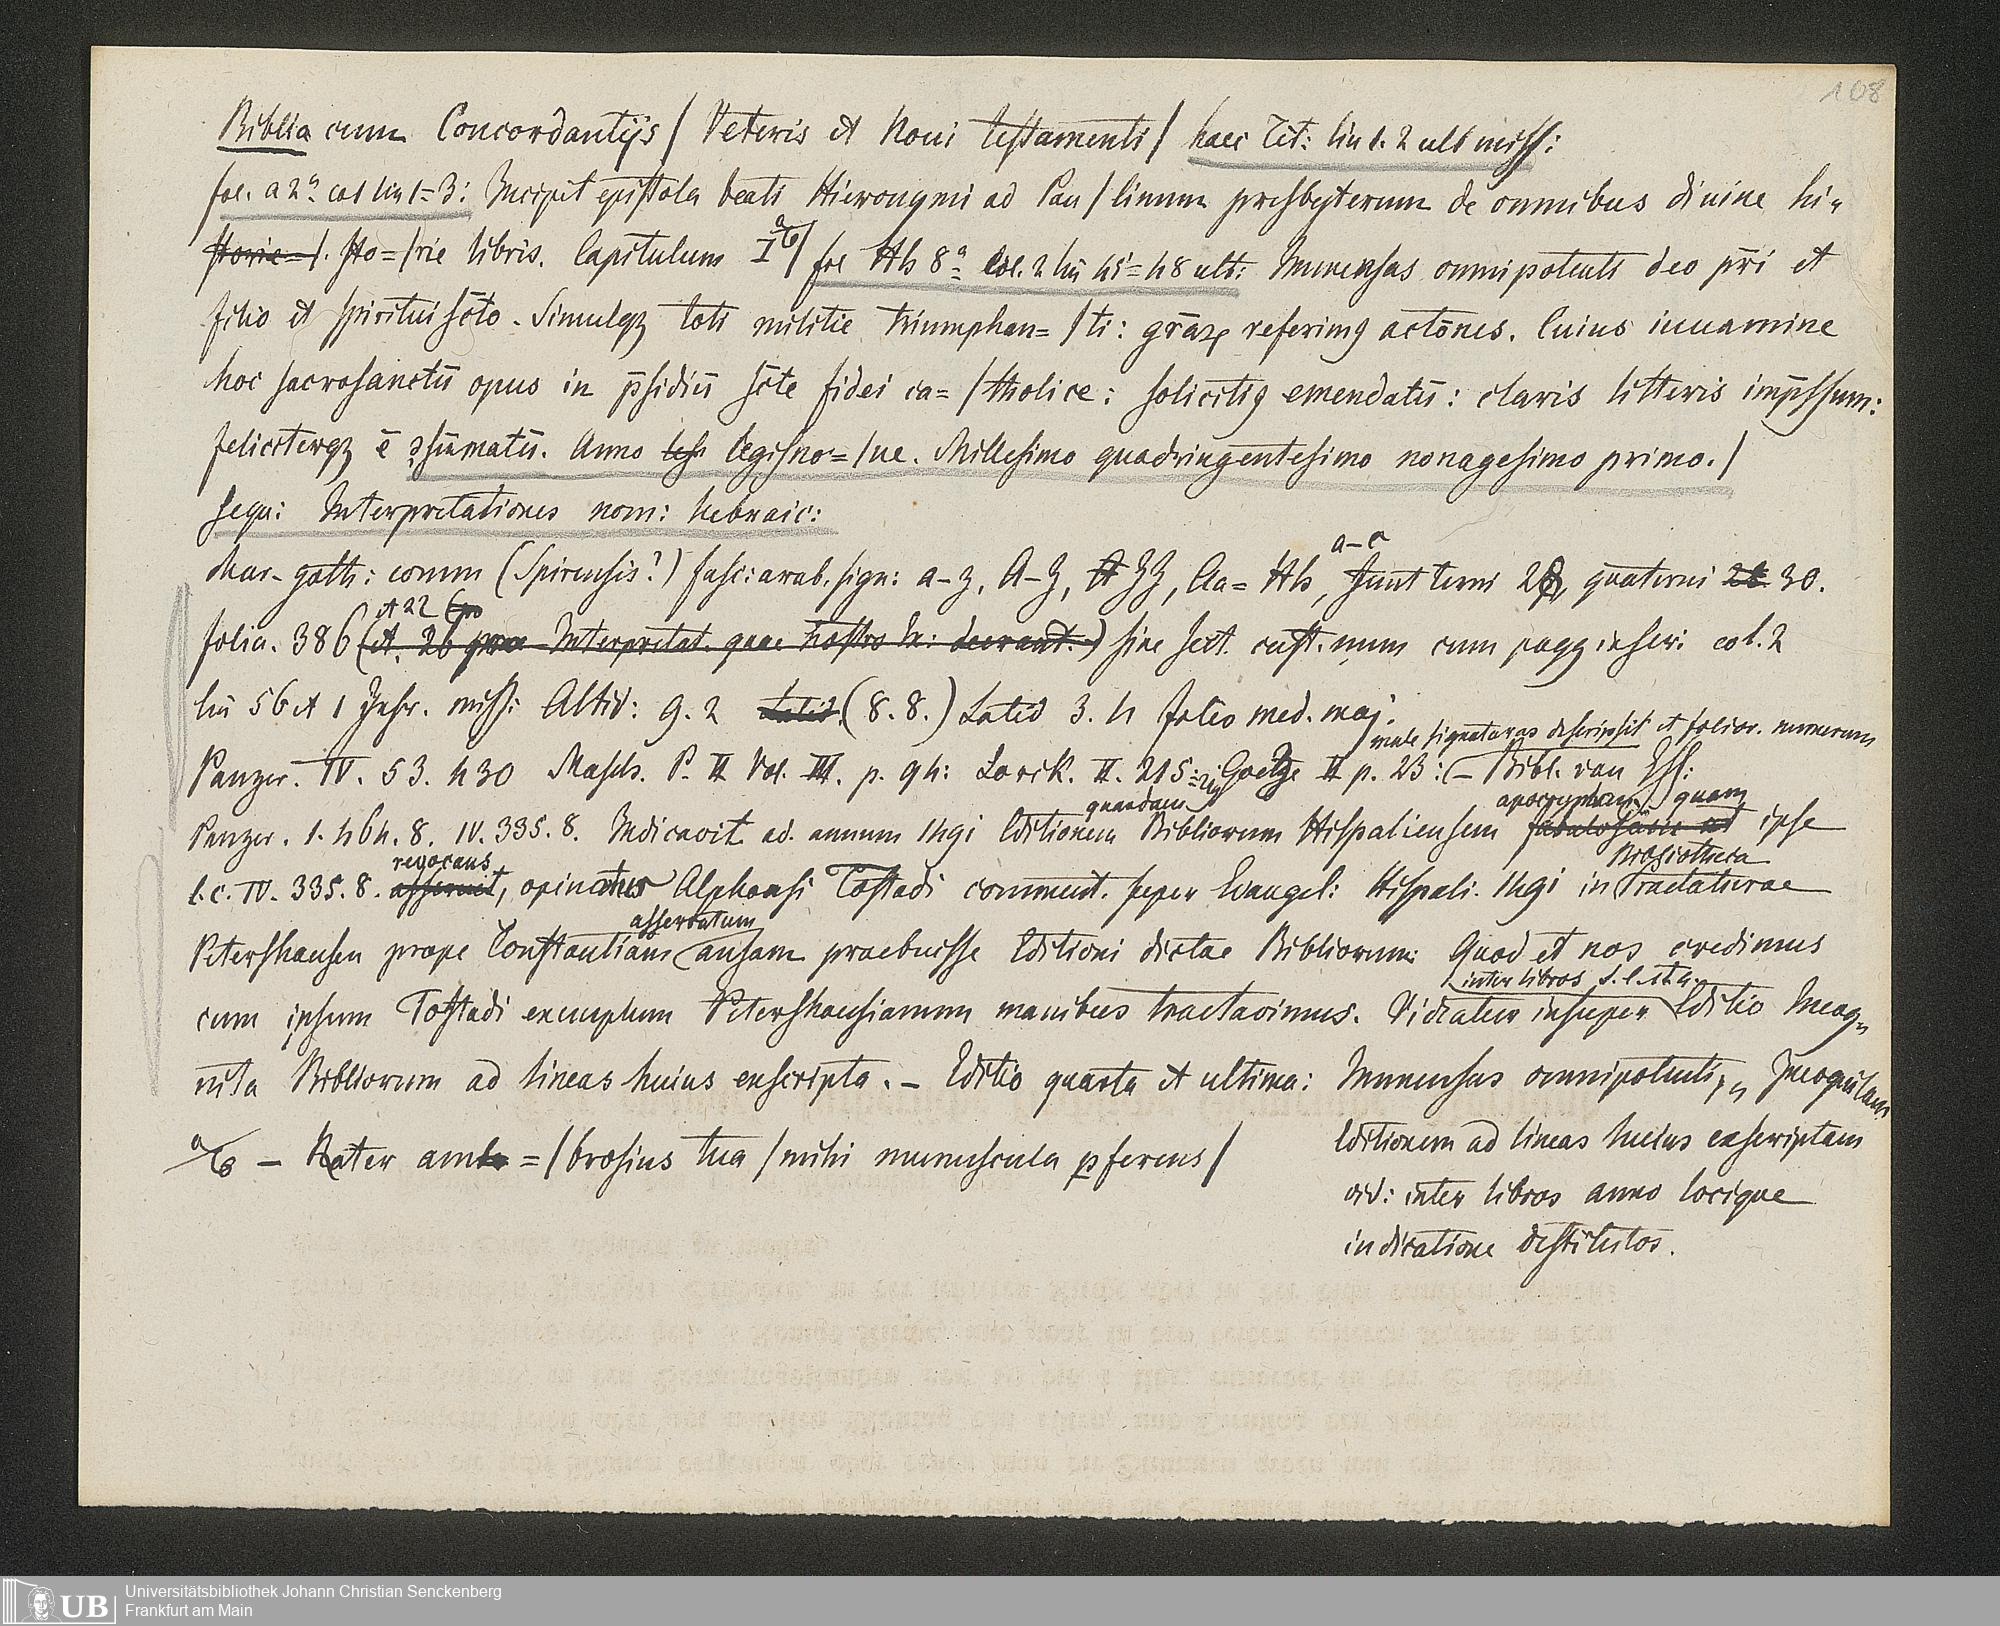 108
Biblia cum Concordantijs / Veteris et Noui testamenti / haec Tit: lin 1. 2 ult miss:
fol. a 2ª col lin 1=3: Incipit epistola beati Hieronymi ad Pau / linum presbyterum de omnibus diuine hi=
storie=/. sto=/rie libris. Capitulum I a/b / fol Hh 8ª col. 2 lin 45=48 ult: Immensas omnipotenti deo pr̄i et
filio et spiritui sct̄o. Simulqꝫ toti militie triumphan= / ti: gr̄aꝝ referimꝰ actōnes. Cuius iuuamine
hoc sacrosanctū opus in p̄sidiū sct̄e fidei ca= / tholice: solicitiꝰ emendatū: claris litteris imp̄ssum:
feliciterqꝫ ē ꝯsūmatū. Anno legisno= / ue. Millesimo quadringentesimo nonagesimo primo. /
sequ: Interpretationes nom: hebraic:
a–c
Char. goth: comm (Spirensis?) fusc: arab. sign: a–z, A–Z, ZZ, Aa=Hh, sunt terni 28, quaterni 30.
et 22
folia. 386 (et. 26 Interpretat. quae nostro deerant.) sine sect. cust. num cum pagg inscr: col. 2
lin 56 et 1 Inscr. miss: Altid: 9. 2 (8. 8.) Latid 3. 4 folio med. maj.
male signaturas descripsit et folior. numerum
Panzer. IV. 53. 430 Masch. P. II Vol. III. p. 94: Lorck. II. 215: Goetze II p. 23: – Bibl. van Ess:
quandam apocrypham quam
Panzer. 1. 464. 8. IV. 335. 8. Indicavit ad annum 1491 Editionem Bibliorum Hispaliensem ipse
revocans Bibliotheca
l.c. IV. 335. 8. asseruit, opinatus Alphonsi Tostadi comment. super Evangel: Hispali. 1491 in Praelaturae
asservatum
Petershausen prope Constantiam ansam praebuisse Editioni dictae Bibliorum: Quod et nos credimus
inter libros s. l. et a.
cum ipsum Tostadi exemplum Petershausianum manibus tractavimus. Videatur insuper Editio Incog=
nita Bibliorum ad lineas huius exscripta. – Editio quarta et ultima: Immensas omnipotenti,, Incognitam
Editionem ad lineas huius exscriptam
vid: inter libros anno locique
indicatione destitutos.
a/b – Frater am= / brosius tua / mihi munuscula ꝑferens /
UB
Universitätsbibliothek Johann Christian Senckenberg
Frankfurt am Main